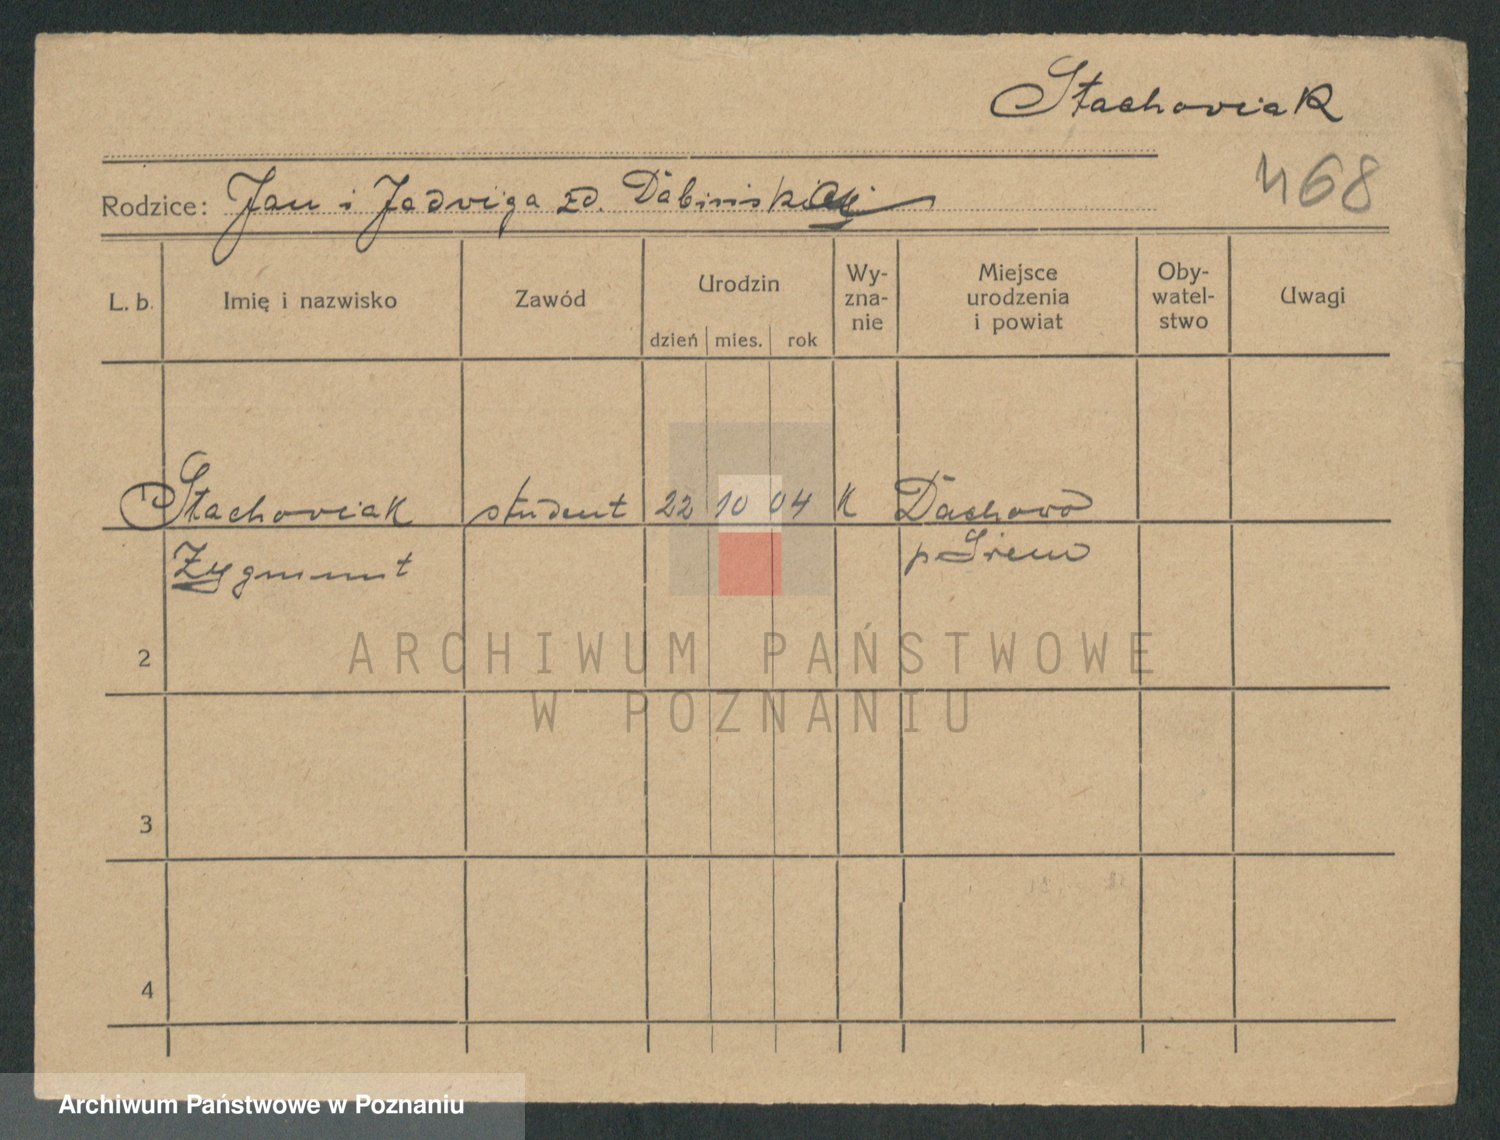 Stachowiak
Rodzice: Jan i Jadwiga zd.
468
L. b. Imię i nazwisko Zawód Urodzin Wy- Miejsce Oby- Uwagi
zna- urodzenia watel-
nie i powiat stwo
dzień mies. rok
1 Stachowiak student 22 10 04 K Dachowo
Zygmunt p. Śrem
2
3
4
ARCHIWUM PAŃSTWOWE
W POZNANIU
Archiwum Państwowe w Poznaniu